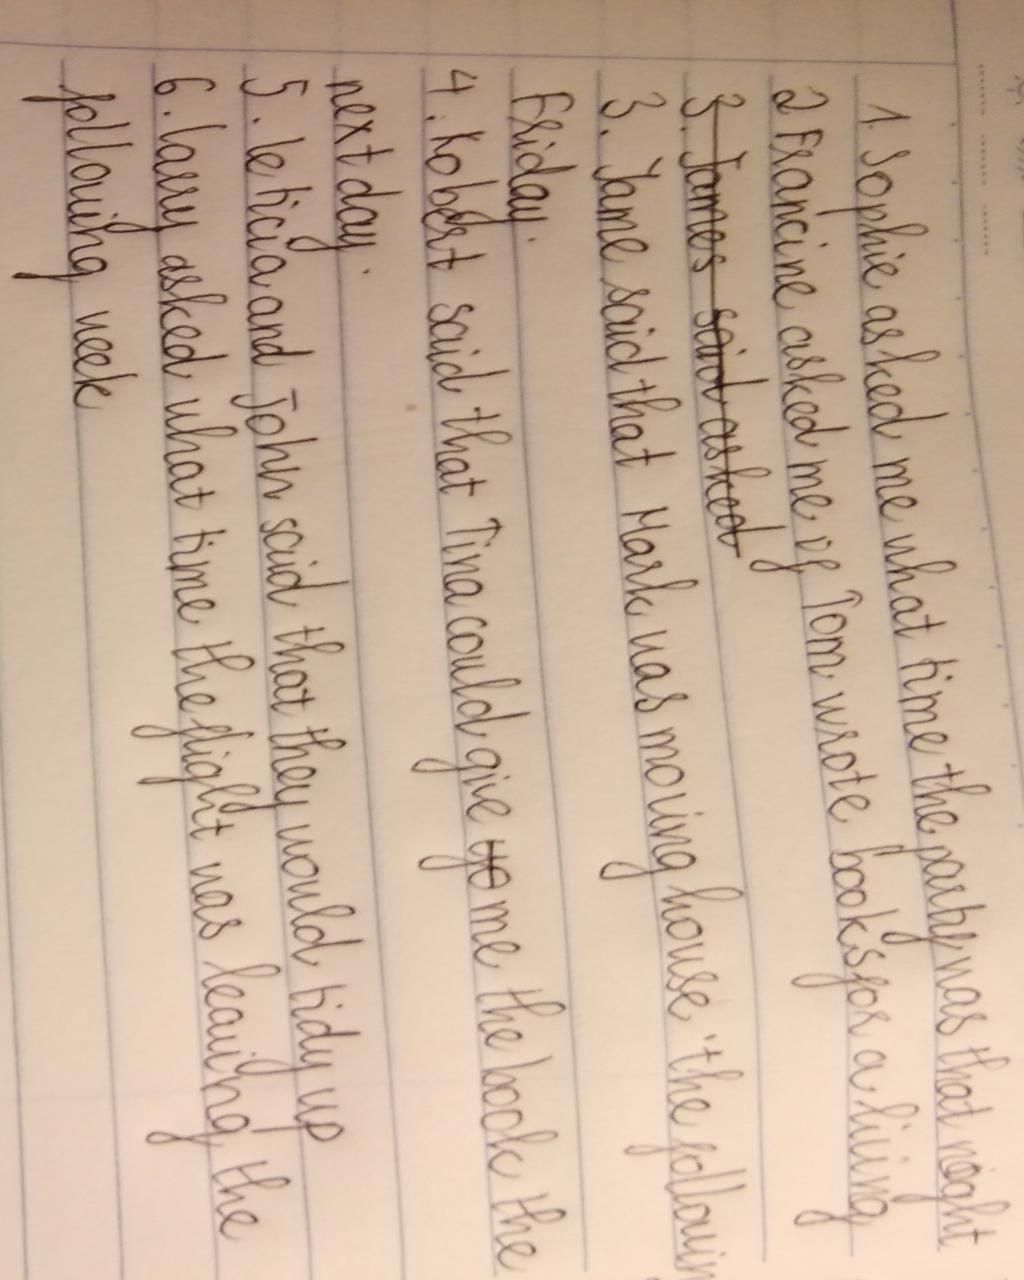 1. Sophie asked me what time the party was that night
2 Francine asked me if Tom wrote books for a living
3. James said asked
3. Jame said that Mark was moving house the followin
Friday.
4. Robert said that Tina could give to me the book the
next day.
5. leticia and John said that they would tidy up
6. larry asked what time the flight was leaving the
following week